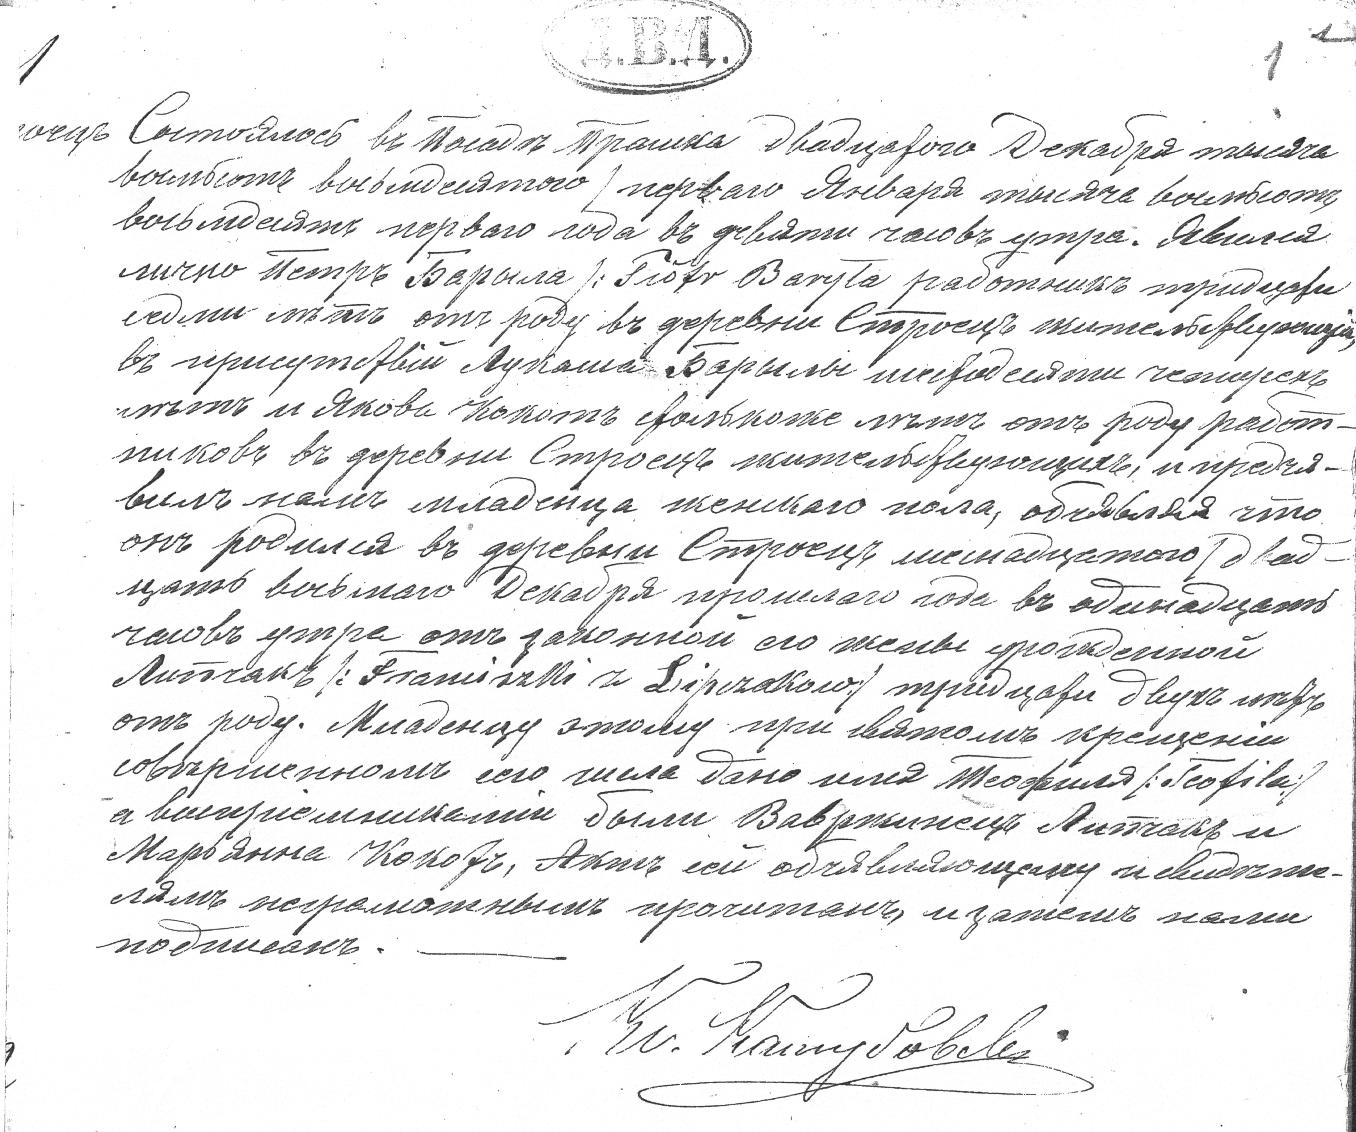 Д.В.Д.
1 1
Состоялось въ Посадѣ Прашка двадцатого Декабря тысяча
восмьсотъ восьмдесятого / перваго Января тысяча восмьсотъ
восьмдесятъ перваго года въ девяти часовъ утра. Явился
лично Петръ Барыла /: Piotr Baryła работникъ тридцати
седми лѣтъ отъ роду въ деревни Строецъ жительствующій,
въ присутствіи Лукаша Барылы шестодесяти четырехъ
лѣтъ и Якова Кокотъ столькоже лѣтъ отъ роду работ-
никовъ въ деревни Строецъ жительствующихъ, и предъя-
вилъ намъ младенца женскаго пола, объявляя что
онъ родился въ деревни Строецъ шеснадцатого / двад-
цать восьмаго Декабря прошлаго года въ одинадцать
часовъ утра отъ законной его жены урожденной
Липчакъ /: Franciszki z Lipczaków :/ тридцати двухъ лѣтъ
отъ роду. Младенцу этому при святомъ крещеніи
совѣршенномъ сего числа дано имя Теофиля /: Teofila :/
а воспріемниками были Вавржинецъ Липчакъ и
Марьянна Кокотъ, Актъ сей объявляющему и свидѣте-
лямъ неграмотнымъ прочитанъ, и затемъ нами
подписанъ.